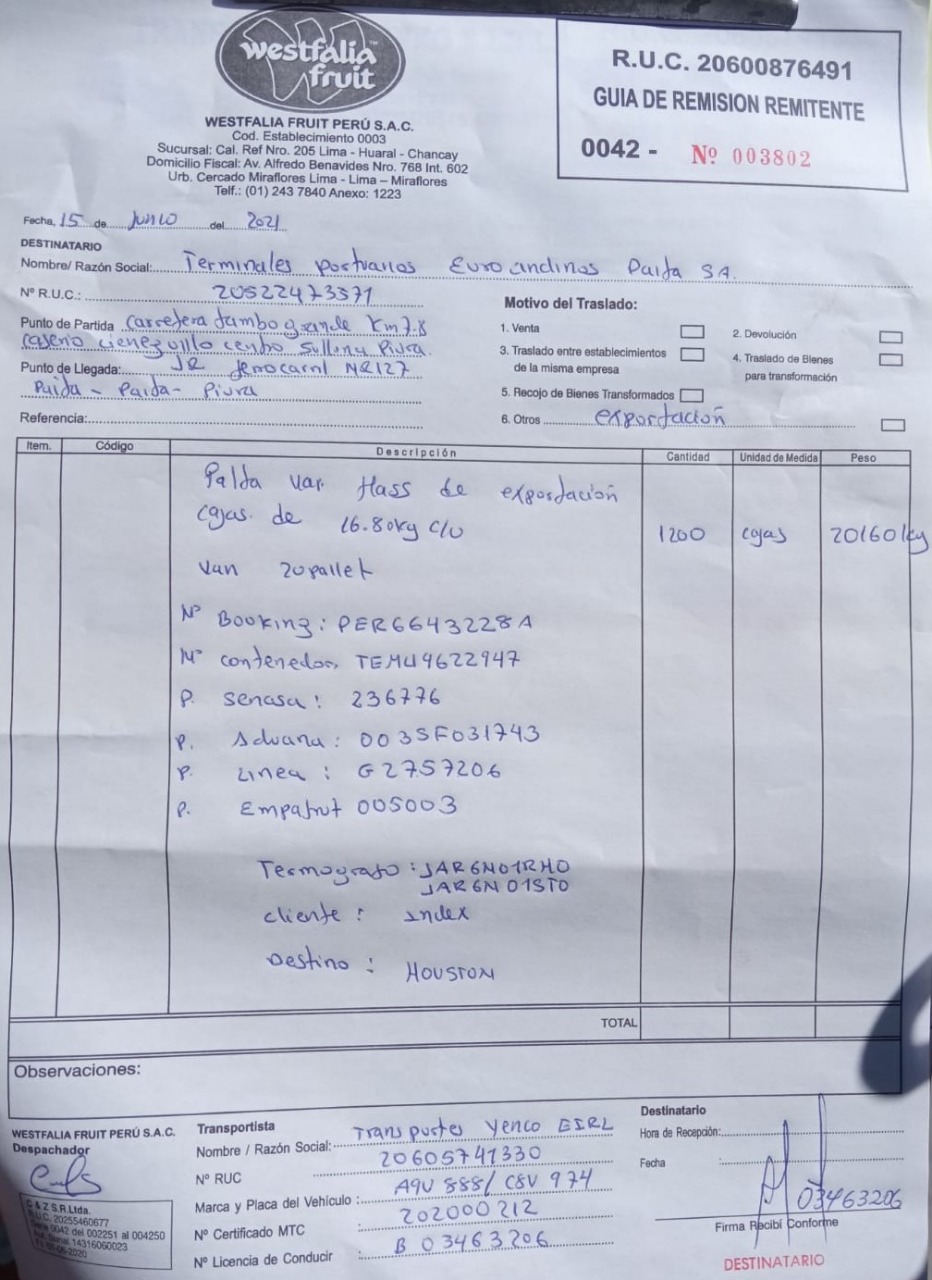 westfalia™
fruit
WESTFALIA FRUIT PERÚ S.A.C.
Cod. Establecimiento 0003
Sucursal: Cal. Ref Nro. 205 Lima - Huaral - Chancay
Domicilio Fiscal: Av. Alfredo Benavides Nro. 768 Int. 602
Urb. Cercado Miraflores Lima - Lima – Miraflores
Telf.: (01) 243 7840 Anexo: 1223
R.U.C. 20600876491
GUIA DE REMISION REMITENTE
0042 - Nº 003802
Fecha, 15 de Junio del 2021
DESTINATARIO
Nombre/ Razón Social: Terminales portuarios Euroandinos Paita SA.
Nº R.U.C.: 20522473571
Punto de Partida carretera tambo grande Km 7.8
caserio cieneguillo centro Sullana Piura.
Punto de Llegada: JR ferrocarril NR127
Paita - Paita - Piura
Referencia:
Motivo del Traslado:
1. Venta
2. Devolución
3. Traslado entre establecimientos
de la misma empresa
4. Traslado de Bienes
para transformación
5. Recojo de Bienes Transformados
6. Otros exportación
Item. Código Descripción Cantidad Unidad de Medida Peso
Palta var. Hass de exportación
cajas. de 16.80kg c/u 1200 cajas 20160 kg
Van 20 pallet
Nº Booking: PER6643228A
Nº contenedor, TEMU9622947
P. senasa: 236776
P. Aduana: 003SF031743
P. Linea: G2757206
P. Empafrut 005003
Termografo: JAR6N01RH0
JAR6N01ST0
cliente: Index
Destino: HOUSTON
TOTAL
Observaciones:
WESTFALIA FRUIT PERÚ S.A.C.
Despachador
C & Z S.R.Ltda.
R.U.C. 20255460677
Serie 0042 del 002251 al 004250
14316060023
Transportista
Nombre / Razón Social: Transportes Yenco EIRL
Nº RUC 20605741330
Marca y Placa del Vehículo: A9U 888/ C8V 974
Nº Certificado MTC 202000212
Nº Licencia de Conducir : B 03463206
Destinatario
Hora de Recepción:
Fecha
03463206
Firma Recibí Conforme
DESTINATARIO